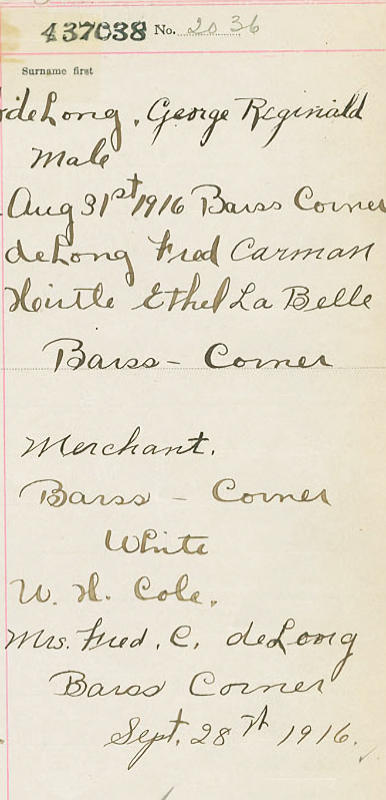 437038 No. 2036
Surname first
deLong, George Reginald
Male
Aug 31st 1916 Barss Corner
deLong Fred Carman
Hirtle Ethel La Belle
Barss - Corner
Merchant.
Barss - Corner
White
W. H. Cole.
Mrs. Fred. C. deLong
Barss Corner
Sept. 28th 1916.